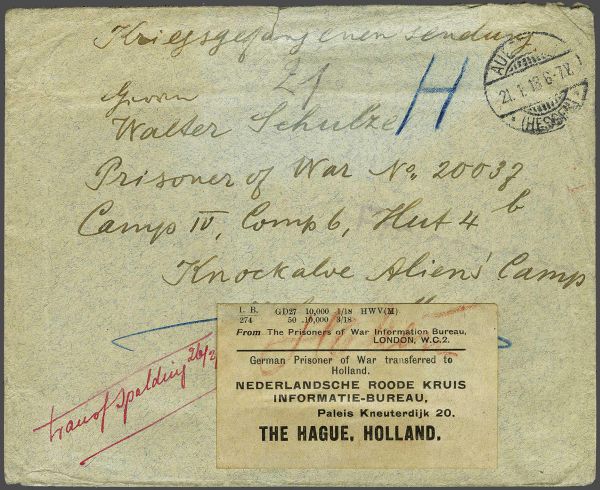 Kriegsgefangenen sendung
21
H
21.1.18 6-7V.
(HESSEN)
Herrn
Walter Schulze
Prisoner of War No. 20037
Camp IV, Comp 6, Hut 4 b
Knockaloe Aliens' Camp
I. B. GD27 10,000 1/18 HWV(M)
274 50 10,000 3/18
From The Prisoners of War Information Bureau,
LONDON, W.C.2.
German Prisoner of War transferred to
Holland.
NEDERLANDSCHE ROODE KRUIS
INFORMATIE-BUREAU,
Paleis Kneuterdijk 20.
THE HAGUE, HOLLAND.
transf Spalding 26/2